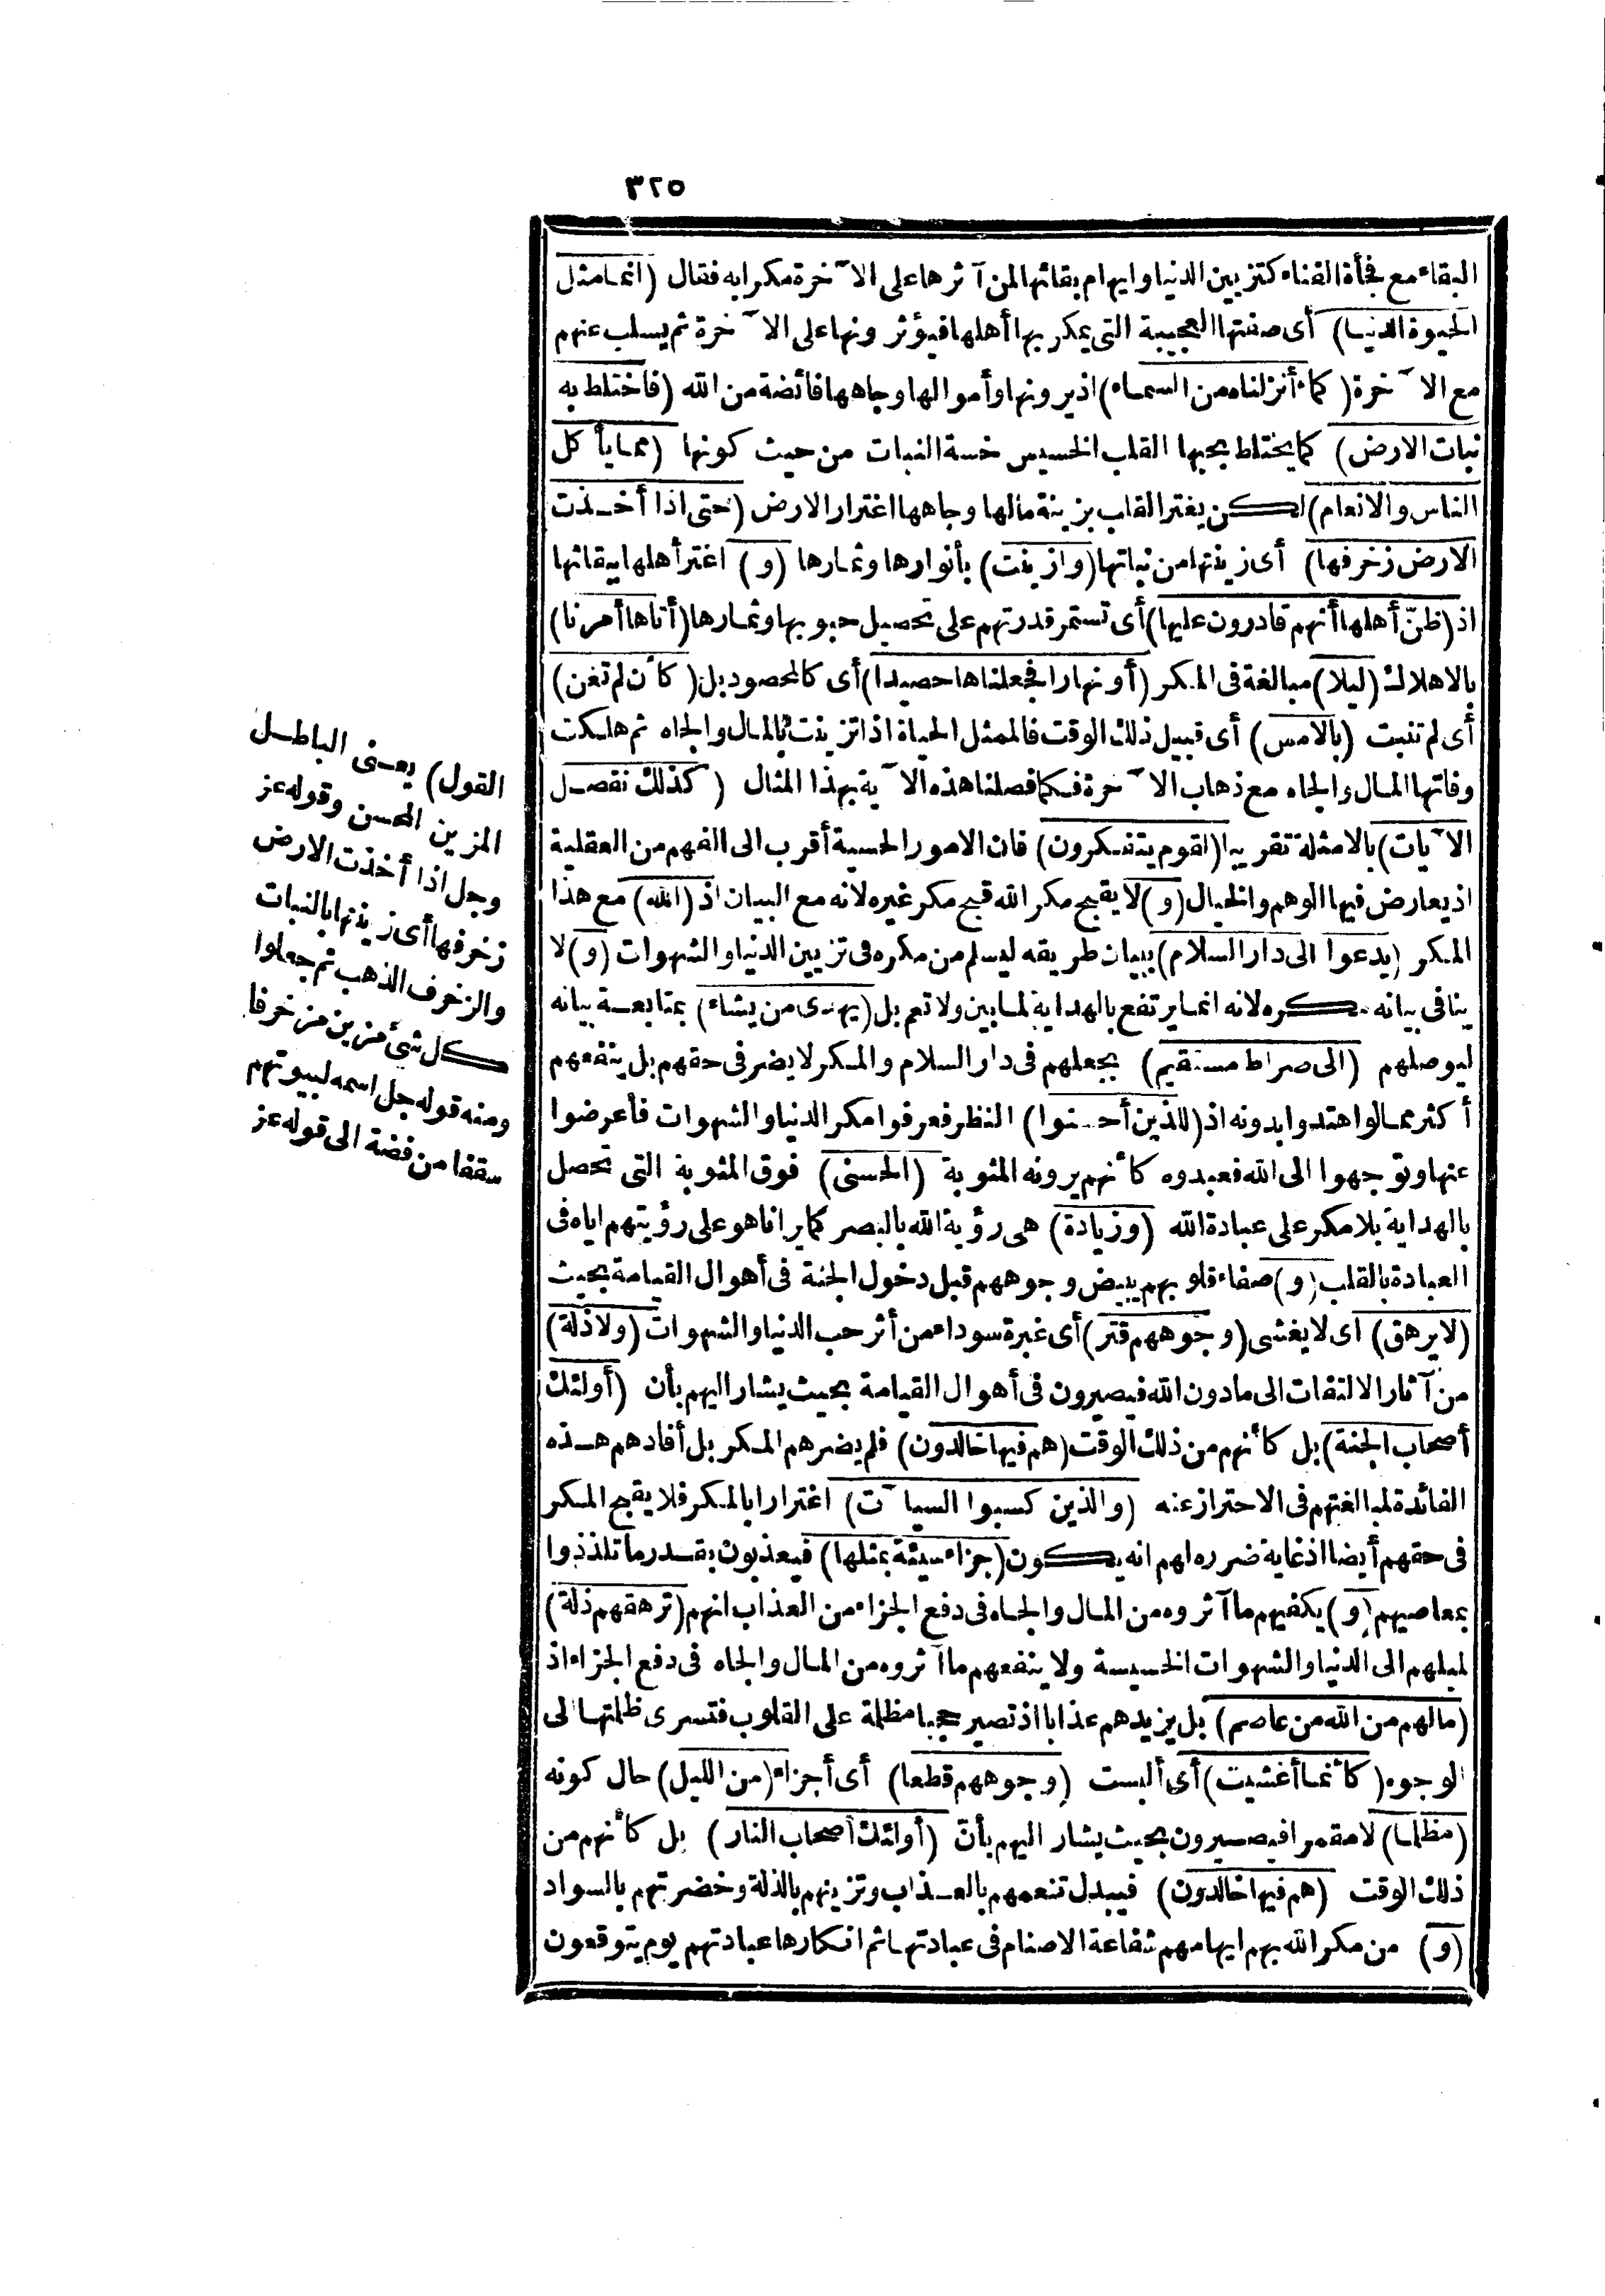 ٣٢٥
البقاء مع فجأة الفناء كتزيين الدنيا وايهام بقائها لمن آثرها على الآخرة مكرا به فقال (انما مثل
الحيوة الدنيا) أى صفتها العجيبة التى يمكر بها أهلها فيؤثرونها على الآخرة ثم يسلب عنهم
مع الآخرة (كماء أنزلناه من السماء) اذ يرونها وأموالها وجاهها فائضة من الله (فاختلط به
نبات الارض) كما يختلط بحبها القلب الخسيس خسة النبات من حيث كونها (مما يأكل
الناس والانعام) لكن يغتر القلب بزينة مالها وجاهها اغترار الارض (حتى اذا أخذت
الارض زخرفها) أى زينتها من نباتها (وازينت) بأنوارها وثمارها (و) اغتر أهلها ببقائها
اذ (ظنّ أهلها أنهم قادرون عليها) أى تستمر قدرتهم على تحصيل حبوبها وثمارها (أتاها أمرنا)
بالاهلاك (ليلا) مبالغة فى المكر (أو نهارا فجعلناها حصيدا) أى كالمحصود بل (كأن لم تغن)
أى لم تنبت (بالامس) أى قبيل ذلك الوقت فالممثل الحياة اذا تزينت بالمال والجاه ثم هلكت
وفاتها المال والجاه مع ذهاب الآخرة فكما فصلنا هذه الآية بهذا المثال (كذلك نفصل
الآيات) بالامثلة تقريبا (لقوم يتفكرون) فان الامور الحسية أقرب الى الفهم من العقلية
اذ يعارض فيها الوهم والخيال (و) لا يقبح مكر الله قبح مكر غيره لانه مع البيان اذ (الله) مع هذا
المكر (يدعوا الى دار السلام) ببيان طريقه ليسلم من مكره فى تزيين الدنيا والشهوات (و) لا
ينافى بيانه مكره لانه انما يرتفع بالهداية لما بين ولا تعم بل (يهدى من يشاء) بمتابعة بيانه
ليوصلهم (الى صراط مستقيم) بجعلهم فى دار السلام والمكر لا يضر فى حقهم بل ينفعهم
أكثر مما لو اهتدوا بدونه اذ (للذين أحسنوا) النظر فعرفوا مكر الدنيا والشهوات فأعرضوا
عنها وتوجهوا الى الله فعبدوه كأنهم يرونه المثوبة (الحسنى) فوق المثوبة التى تحصل
بالهداية بلا مكر على عبادة الله (وزيادة) هى رؤية الله بالبصر كما يرانا هو على رؤيتهم اياه فى
العبادة بالقلب (و) صفاء قلوبهم يبيض وجوههم قبل دخول الجنة فى أهوال القيامة بحيث
(لا يرهق) أى لا يغشى (وجوههم قتر) أى غبرة سوداء من أثر حب الدنيا والشهوات (ولا ذلة)
من آثار الالتفات الى ما دون الله فيصيرون فى أهوال القيامة بحيث يشار اليهم بأن (أولئك
أصحاب الجنة) بل كأنهم من ذلك الوقت (هم فيها خالدون) فلم يضرهم المكر بل أفادهم هذه
الفائدة لمبالغتهم فى الاحتراز عنه (والذين كسبوا السيآت) اغترارا بالمكر فلا يقبح المكر
فى حقهم أيضا اذ غاية ضرره لهم انه يكون (جزاء سيئة بمثلها) فيعذبون بقدر ما تلذذوا
بمعاصيهم (و) يكفيهم ما آثروه من المال والجاه فى دفع الجزاء من العذاب انهم (ترهقهم ذلة)
لميلهم الى الدنيا والشهوات الخسيسة ولا ينفعهم ما آثروه من المال والجاه فى دفع الجزاء اذ
(ما لهم من الله من عاصم) بل يزيدهم عذابا اذ تصير حجبا مظلمة على القلوب فتسرى ظلمتها الى
الوجوه (كأنما أغشيت) أى ألبست (وجوههم قطعا) أى أجزاء (من الليل) حال كونه
(مظلما) لا مقمرا فيصيرون بحيث يشار اليهم بأنّ (أولئك أصحاب النار) بل كأنهم من
ذلك الوقت (هم فيها خالدون) فيبدل تنعمهم بالعذاب وتزينهم بالذلة وخضرتهم بالسواد
(و) من مكر الله بهم ايهامهم شفاعة الاصنام فى عبادتها ثم انكارها عبادتهم يوم يتوقعون
القول) يعنى الباطل
المزين المحسن وقوله عز
وجل اذا أخذت الارض
زخرفها أى زينتها بالنبات
والزخرف الذهب ثم جعلوا
كل شئ مزين مزخرفا
ومنه قوله جل اسمه لبيوتهم
سقفا من فضة الى قوله عز